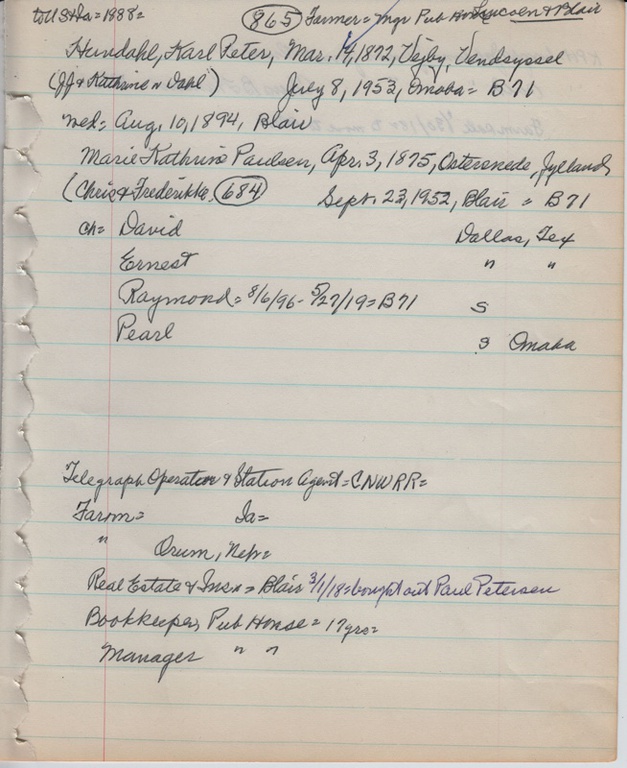 to US & Ia = 1888 = 865 Farmer = Mgr Pub Lincoln & Blair
Hundahl, Karl Peter, Mar. 14, 1872, Vejby, Vendsyssel
(JJ & Kathrine n Dahl) July 8, 1953, Omaha = B71
wed = Aug. 10, 1894, Blair
Marie Kathrine Paulsen, Apr. 3, 1875, Jylland
(Chris & Frederikke, 684) Sept. 23, 1952, Blair = B71
ch = David Dallas, Tex
Ernest " "
Raymond = 8/6/96 - 5/27/19 = B71 S
Pearl S Omaha
Telegraph Operator & Station Agent = CNWRR =
Farm = Ia =
" Orum, Neb =
Real Estate & Ins = Blair 3/1/18 = bought out Paul Petersen
Bookkeeper, Pub House = 17 yrs =
Manager " "